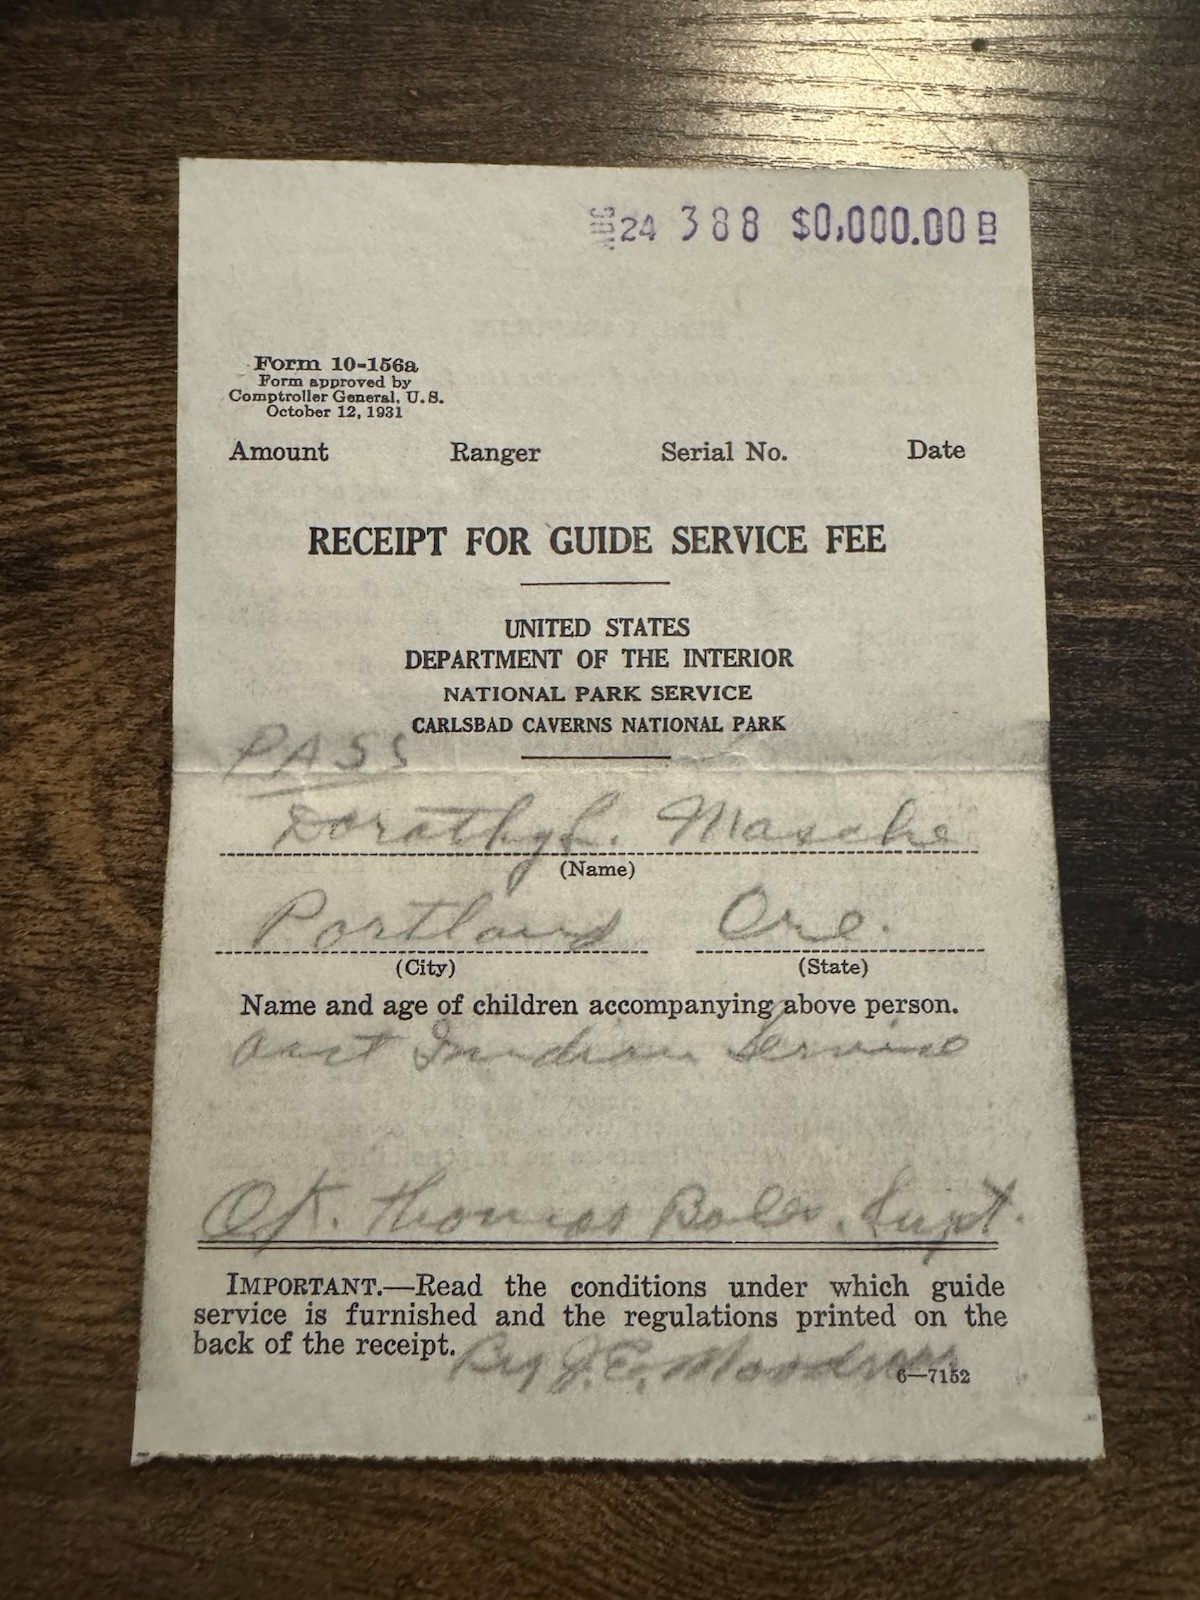 AUG 24 388 $0,000.00 B
Form 10-156a
Form approved by
Comptroller General, U.S.
October 12, 1931
Amount Ranger Serial No. Date
RECEIPT FOR GUIDE SERVICE FEE
UNITED STATES
DEPARTMENT OF THE INTERIOR
NATIONAL PARK SERVICE
CARLSBAD CAVERNS NATIONAL PARK
PASS
Dorothy L. Masche
(Name)
Portland Ore.
(City) (State)
Name and age of children accompanying above person.
Indian Service
OK. Thomas Boles, Supt.
IMPORTANT.—Read the conditions under which guide
service is furnished and the regulations printed on the
back of the receipt.
By J.E.
6—7152